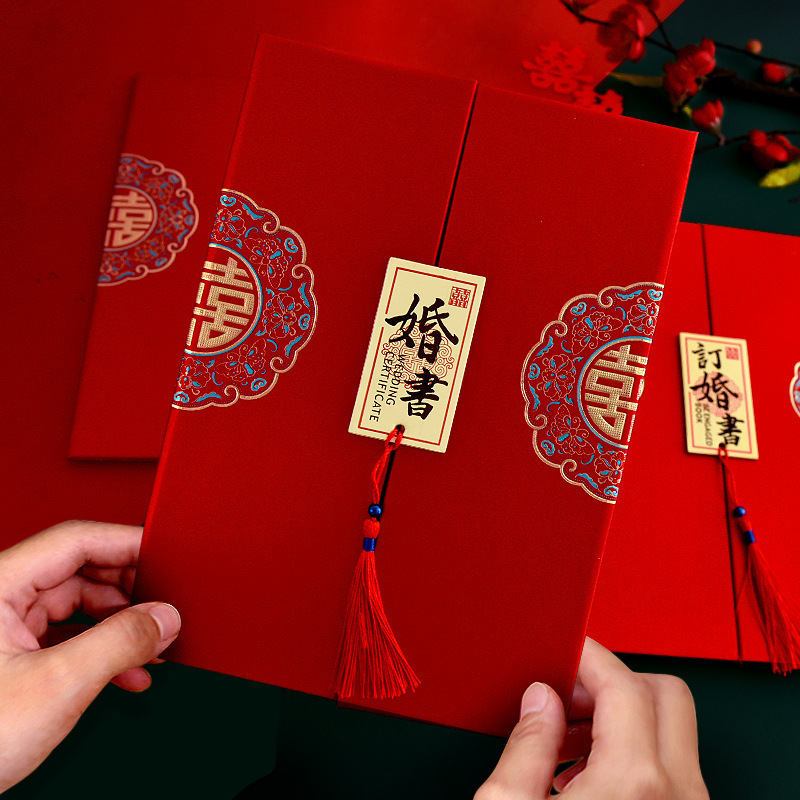 婚書
WEDDING
CERTIFICATE
訂婚書
BE ENGAGED
BOOK
囍
囍
囍
囍
囍